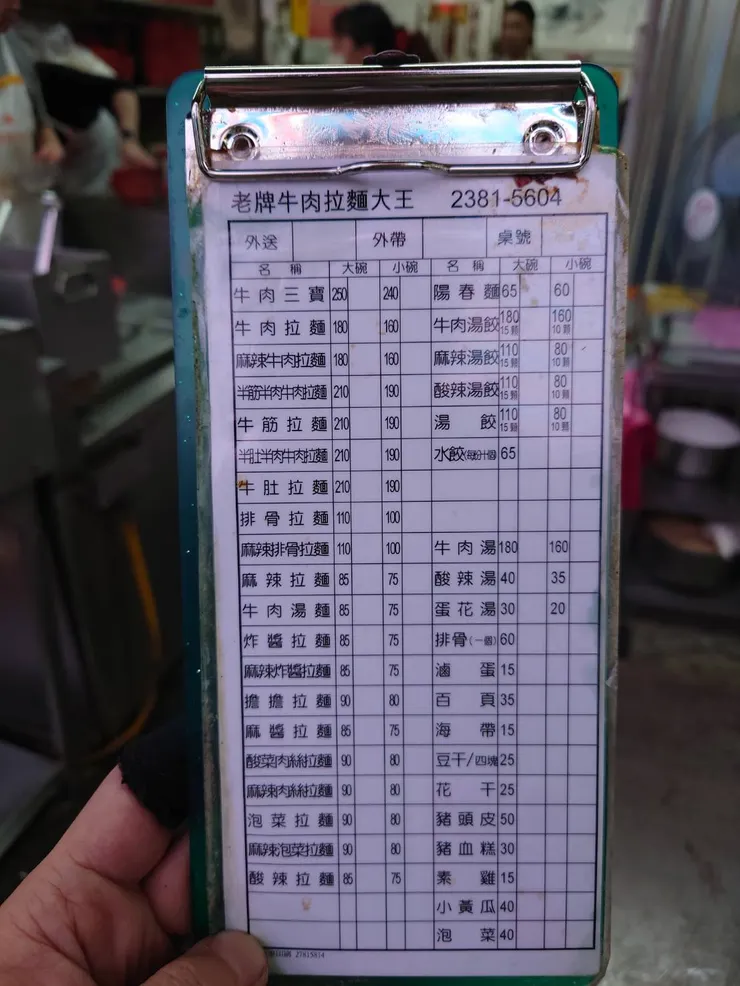 老牌牛肉拉麵大王 2381-5604
外送 外帶 桌號
名稱 大碗 小碗 名稱 大碗 小碗
牛肉三寶 250 240 陽春麵 65 60
牛肉拉麵 180 160 牛肉湯餃 180 15顆 160 10顆
麻辣牛肉拉麵 180 160 麻辣湯餃 110 15顆 80 10顆
半筋半肉牛肉拉麵 210 190 酸辣湯餃 110 15顆 80 10顆
牛筋拉麵 210 190 湯餃 110 15顆 80 10顆
半肚半肉牛肉拉麵 210 190 水餃(每份十個) 65
牛肚拉麵 210 190
排骨拉麵 110 100
麻辣排骨拉麵 110 100 牛肉湯 180 160
麻辣拉麵 85 75 酸辣湯 40 35
牛肉湯麵 85 75 蛋花湯 30 20
炸醬拉麵 85 75 排骨(一個) 60
麻辣炸醬拉麵 85 75 滷蛋 15
擔擔拉麵 90 80 百頁 35
麻醬拉麵 85 75 海帶 15
酸菜肉絲拉麵 90 80 豆干/四塊 25
麻辣肉絲拉麵 90 80 花干 25
泡菜拉麵 90 80 豬頭皮 50
麻辣泡菜拉麵 90 80 豬血糕 30
酸辣拉麵 85 75 素雞 15
小黃瓜 40
泡菜 40
27815814